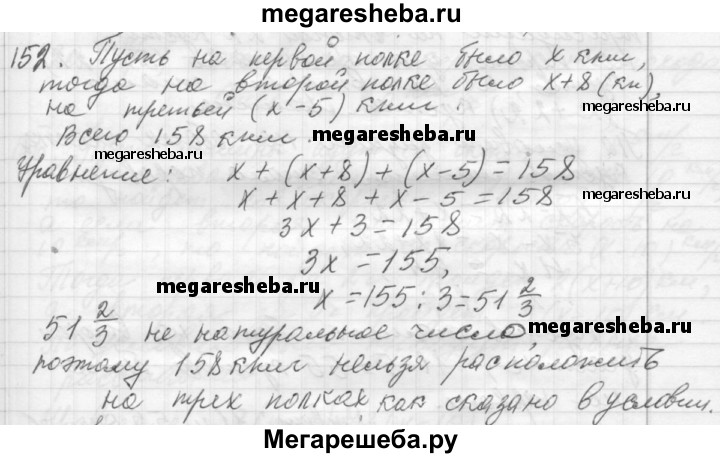 megaresheba.ru
152. Пусть на первой полке было х книг,
тогда на второй полке было х+8 (кн),
на третьей (х-5) книг.
megaresheba.ru
Всего 158 книг.
megaresheba.ru
megaresheba.ru
Уравнение: х + (х+8) + (х-5) = 158
х + х + 8 + х - 5 = 158
megaresheba.ru
3х + 3 = 158
3х = 155,
megaresheba.ru
х = 155 : 3 = 51 2/3
51 2/3 не натуральное число,
megaresheba.ru
поэтому 158 книг нельзя расположить
на трех полках как сказано в условии.
Мегарешеба.ру